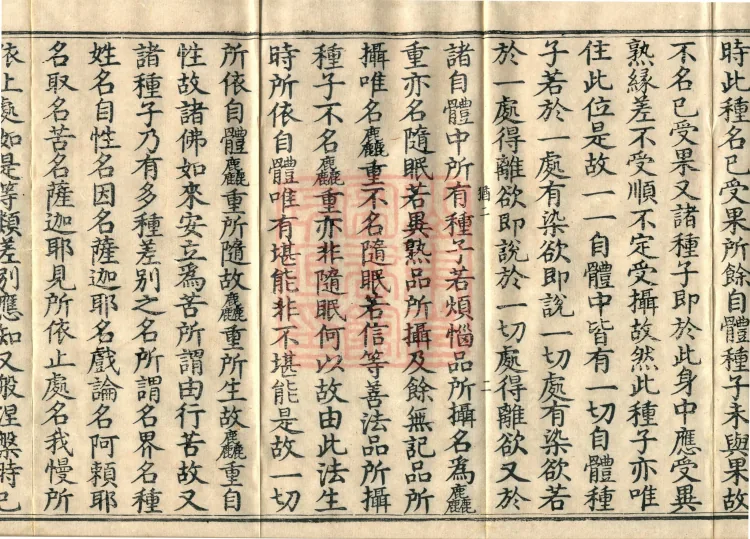 時此種名已受果所餘自體種子未與果故
不名已受果又諸種子即於此身中應受異
熟緣差不受順不定受攝故然此種子亦唯
住此位是故一一自體中皆有一切自體種
子若於一處有染欲即說一切處有染欲若
於一處得離欲即說於一切處得離欲又於
猶二
二
諸自體中所有種子若煩惱品所攝名為麤
重亦名隨眠若異熟品所攝及餘無記品所
攝唯名麤重不名隨眠若信等善法品所攝
種子不名麤重亦非隨眠何以故由此法生
時所依自體唯有堪能非不堪能是故一切
所依自體麤重所隨故麤重所生故麤重自
性故諸佛如來安立為苦所謂由行苦故又
諸種子乃有多種差別之名所謂名界名種
姓名自性名因名薩迦耶名戲論名阿賴耶
名取名苦名薩迦耶見所依止處名我慢所
依止處如是等類差別應知又般涅槃時已